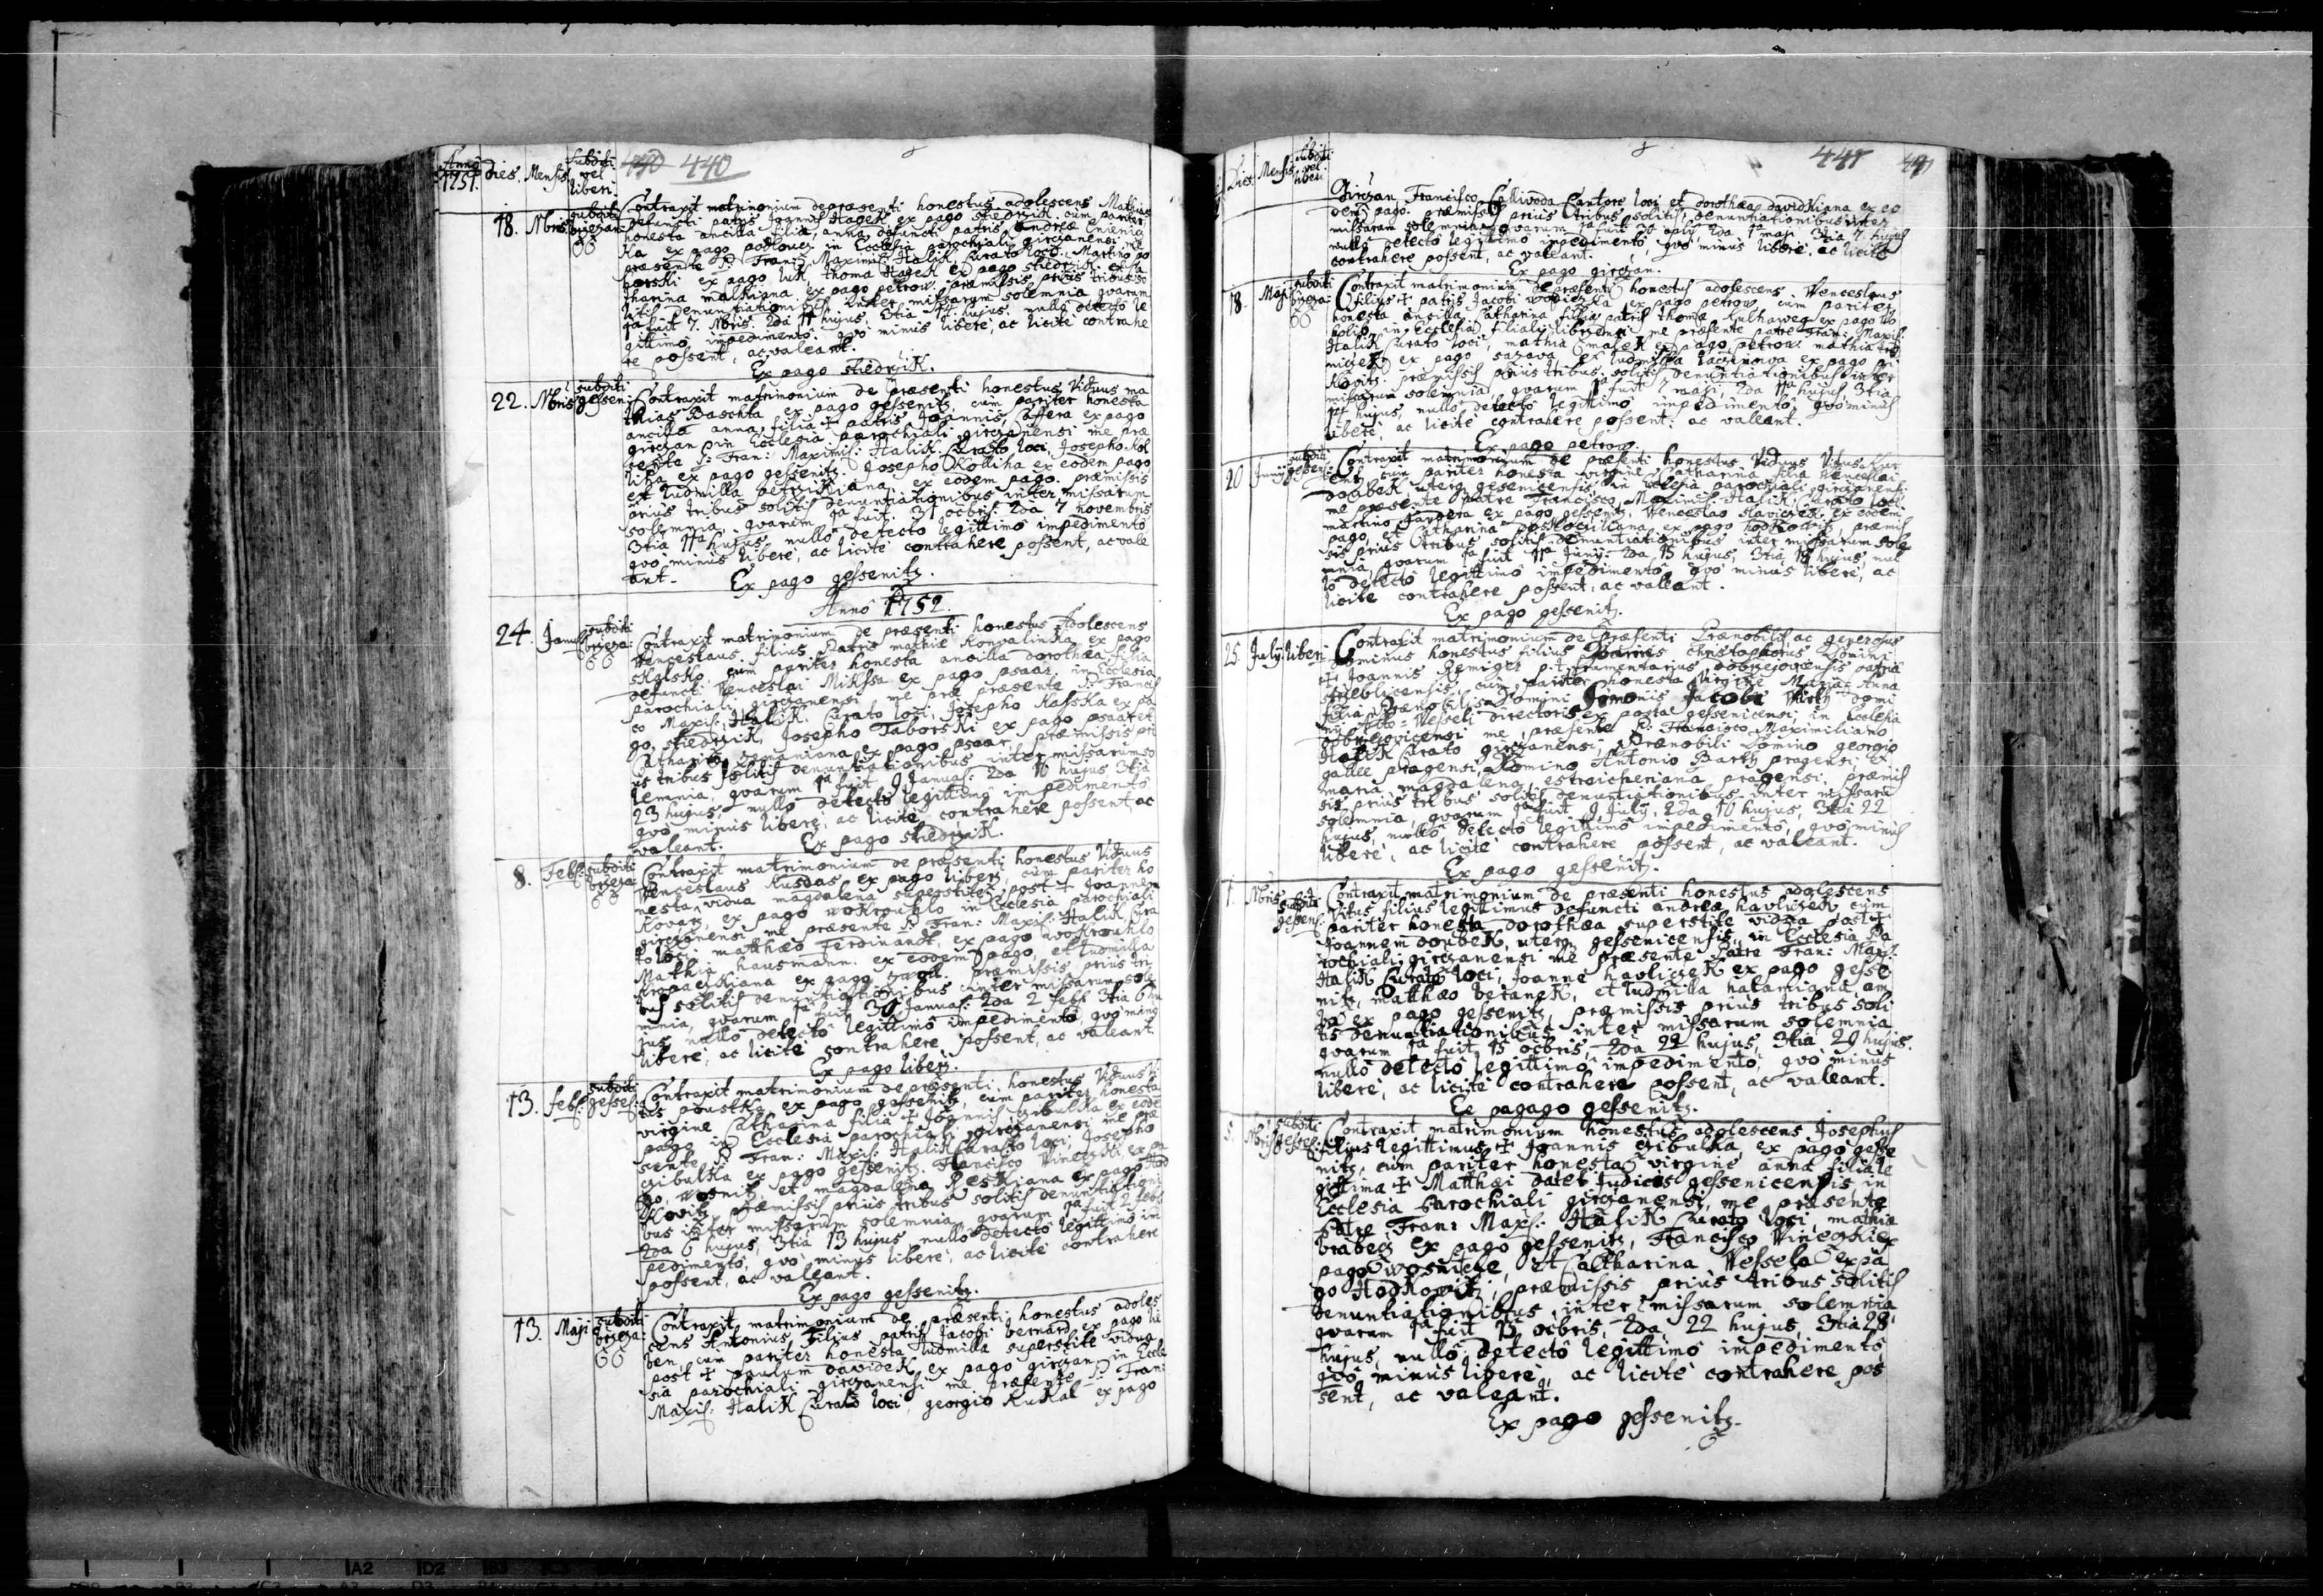 Anno 1751. Dies. Mensis subditi vel liberi. 440 440
18. Nbris subditi Contraxit matrimonium de præsenti honestus adolescens Mathias
defuncti patris Joannis Hagek ex pago stiedrzik cum pariter
honesta ancilla filia anna defuncti patris Andreæ
Ka ex pago podlouez in Ecclesia parochiali girczanensi me
præsente P: Franc: Maximil: Halik Curato loci. Martino po
borski ex pago luk, thoma Hagek ex pago stiedrzik et Ca
tharina ex pago petrow. præmissis prius tribus so
litis denuntiationibus inter missarum solemnia quarum
1ma fuit 7. Nbris. 2da 11 hujus, 3tia 14 hujus. nullo detecto le
gittimo impedimento. quo minus libere, ac licite contrahe
re possent, ac valeant.
Ex pago stiedrzik.
22. Nbris subditi gesseni: Contraxit matrimonium de præsenti honestus Viduus ma
thias Baschta ex pago gessenitz cum pariter honesta
ancilla anna filia + patris Joannis ex pago
girczan in Ecclesia parochiali girczanensi me præ
sente P: Fran: Maximil: Halik Curato loci, Josepho Kol
liha ex pago gessenitz. Josepho Kolliha ex eodem pago
et ludmilla ex eodem pago. præmissis
prius tribus solitis denuntiationibus inter missarum
solemnia, quarum 1ma fuit 31 octbris. 2da 7 novembris
3tia 11 hujus nullo detecto legittimo impedimento
quo minus libere, ac licite contrahere possent, ac vale
ant. Ex pago gessenitz.
Anno 1752.
24. Januar: subditi Contraxit matrimonium de præsenti honestus Adolescens
Wenceslaus filius Patris mathiæ Kongalinka ex pago
skalsko, cum pariter honesta ancilla dorothæa filia
defuncti Wenceslai Mikssa ex pago psaar in Ecclesia
parochiali girczanensi me præsente P: Francis
co Maxil: Halik Curato loci, Josepho Kafska ex pa
go stiedrzik, Josepho Taborski ex pago psaar et
Catharina ex pago psaar, præmissis pri
us tribus solitis denuntiationibus inter missarum so
lemnia, quarum 1ma fuit 9 Januar: 2da 16 hujus 3tia
23 hujus, nullo detecto legittimo impedimento
quo minus libere, ac licite contrahere possent, ac
valeant. Ex pago stiedrzik.
8. Feb: subditi Contraxit matrimonium de præsenti honestus Viduus
Wenceslaus Kusdas ex pago liberz, cum pariter ho
nesta, vidua magdalena superstite post + Joannem
Kovarz, ex pago wokrouhlo in Ecclesia parochiali
girczanensi me præsente P: Fran: Maxil: Halik Cura
to loci, matthæo Ferdinandt, ex pago wokrouhlo
Mathia hausmann. ex eodem pago, et ludmilla
ex pago præmissis prius tri
bus solitis denuntiationibus inter missarum sole
mnia, quarum 1ma fuit 30 Januar: 2da 2 Feb: 3tia 6 hu
jus nullo detecto legittimo impedimento, quo minus
libere, ac licite contrahere possent, ac valeant.
Ex pago liberz.
13. Feb: subditi gessen: Contraxit matrimonium de præsenti honestus Viduus Vi
tus poustka ex pago gessenitz, cum pariter honesta
virgine Catharina filia + Joannis czibulka ex eode
pago in Ecclesia parochiali girczanensi me præ
sente P: Fran: Maxil: Halik Curato loci, Josepho
czibulka ex pago gessenitz. Francisco Vineczki, ex pa
go wosnitz, et magdalena ex pago Hod
kowitz præmissis prius tribus solitis denuntiationi
bus inter missarum solemnia, quarum 1ma fuit 2 Feb:
2da 6 hujus, 3tia 13 hujus, nullo detecto legittimo im
pedimento, quo minus libere, ac licite contrahere
possent, ac valeant.
Ex pago gessenitz.
13. Maji subditi Contraxit matrimonium de præsenti honestus adoles
cens Antonius Filius patris Jacobi bernard ex pago li
ben, cum pariter honesta ludmilla superstite vidua
post + paulum davidek, ex pago girczan, in Eccle
sia parochiali girczanensi me præsente P: Fran:
Maxil: Halik Curato loci, georgio Kukal ex pago
Dies Mensis subditi vel liberi. 441
girczan, Francisco Kalliwoda Cantore loci et dorothæa davidkiana ex eo
dem pago. præmissis prius tribus solitis denuntiationibus inter
missarum solemnia, quarum 1ma fuit 30 aplis, 2da 1ma maji 3tia 7. hujus
nullo detecto legittimo impedimento, quo minus libere, ac licite
contrahere possent, ac valeant.
Ex pago girczan.
18. Maji subditi Contraxit matrimonium de præsenti honestus adolescens Wenceslaus
filius + patris Jacobi ex pago petrow, cum pariter
honesta ancilla Catharina filia patris thomæ Kulhaweg ex pago
in Ecclesia filiali me præsente patre Fran: Maxil:
Halik Curato loci, mathia masek ex pago petrow. mathia
ex pago sazava, et ludmilla ex pago
præmissis prius tribus solitis denuntiationibus inter
missarum solemnia, quarum 1ma fuit 7 maji, 2da 11 hujus, 3tia
14 hujus, nullo detecto legittimo impedimento, quo minus
libere, ac licite contrahere possent, ac valeant.
Ex pago petrow.
20 Junij subditi gessen: Contraxit matrimonium de præsenti honestus Viduus Vitus
cum pariter honesta virgine Catharina filia Wenceslai
doubek uterq gessenicensis in Ecclesia parochiali girczanensi
me præsente patre Francisco Maximil: Halik Curato loci
martino ex pago gessenitz, Wenceslao Havliczek, ex eodem
pago, et Catharina ex pago hodkowitz, præmis
sis prius tribus solitis denuntiationibus inter missarum sole
mnia, quarum 1ma fuit 11 Junij. 2da 15 hujus, 3tia 18 hujus, nul
lo detecto legittimo impedimento quo minus libere, ac
licite contrahere possent, ac valeant.
Ex pago gessenitz.
25. July. liberi Contraxit matrimonium de præsenti Prænobilis ac generosus
dominus honestus filius christophorus Domini
+ Joannis Remiger p.t. frumentarius dobrzejovicensis patria
cum pariter honesta Virgine Maria Anna
filia Prænobilis Domini Simonis Jacobi Barth domi
ny Atto-Wesseli directoris ex pago gessenicensi, in Ecclesia
dobrzejovicensi me præsente P: Francisco Maximiliano
Halik Curato girczanensi, Prænobili Domino georgio
gallee pragensi, Domino Antonio Barth pragensi, et
maria magdalena estraicheriana pragensi. præmis
sis prius tribus solitis denuntiationibus inter missaru
solemnia, quarum 1ma fuit 9 July, 2da 16 hujus, 3tia 22
hujus, nullo detecto legittimo impedimento, quo minus
libere, ac licite contrahere possent, ac valeant.
Ex pago gessenitz.
7. Nbris subditi gessen: Contraxit matrimonium de præsenti honestus adolescens
Vitus filius legittimus defuncti andreæ havliczek cum
pariter honesta dorothæa superstite vidua post +
Joannem doubek, uterq gessenicensis, in Ecclesia Pa
rochiali girczanensi me præsente Patre Fran: Maxl:
Halik Curato loci, Joanne havliczek ex pago gesse
nitz, matthæo beranek, et ludmilla halamiana, am
bo ex pago gessenitz, præmissis prius tribus soli
tis denuntiationibus inter missarum solemnia
quarum 1ma fuit 15 octbris 2da 22 hujus, 3tia 29 hujus.
nullo detecto legittimo impedimento, quo minus
libere, ac licite contrahere possent, ac valeant.
Ex pagago gessenitz.
5. Nbris subditi gessen: Contraxit matrimonium honestus adolescens Josephus
filius legittimus + Joannis czibulka, ex pago gesse
nitz, cum pariter honesta virgine anna filia le
gittima + Matthæi Darek Judicis gessenicensis in
Ecclesia Parochiali girczanensi, me præsente
Patre Fran: Maxl: Halik Curato loci, mathia
brabetz ex pago gessenitz, Francisco Vineczki ex
pago wosnitze, et Catharina Wessela ex pa
go Hodkowitz, præmissis prius tribus solitis
denuntiationibus inter missarum solemnia,
quarum 1ma fuit 15 octbris, 2da 22 hujus, 3tia 28,
hujus, nullo detecto legittimo impedimento,
quo minus libere, ac licite contrahere pos
sent, ac valeant.
Ex pago gessenitz.